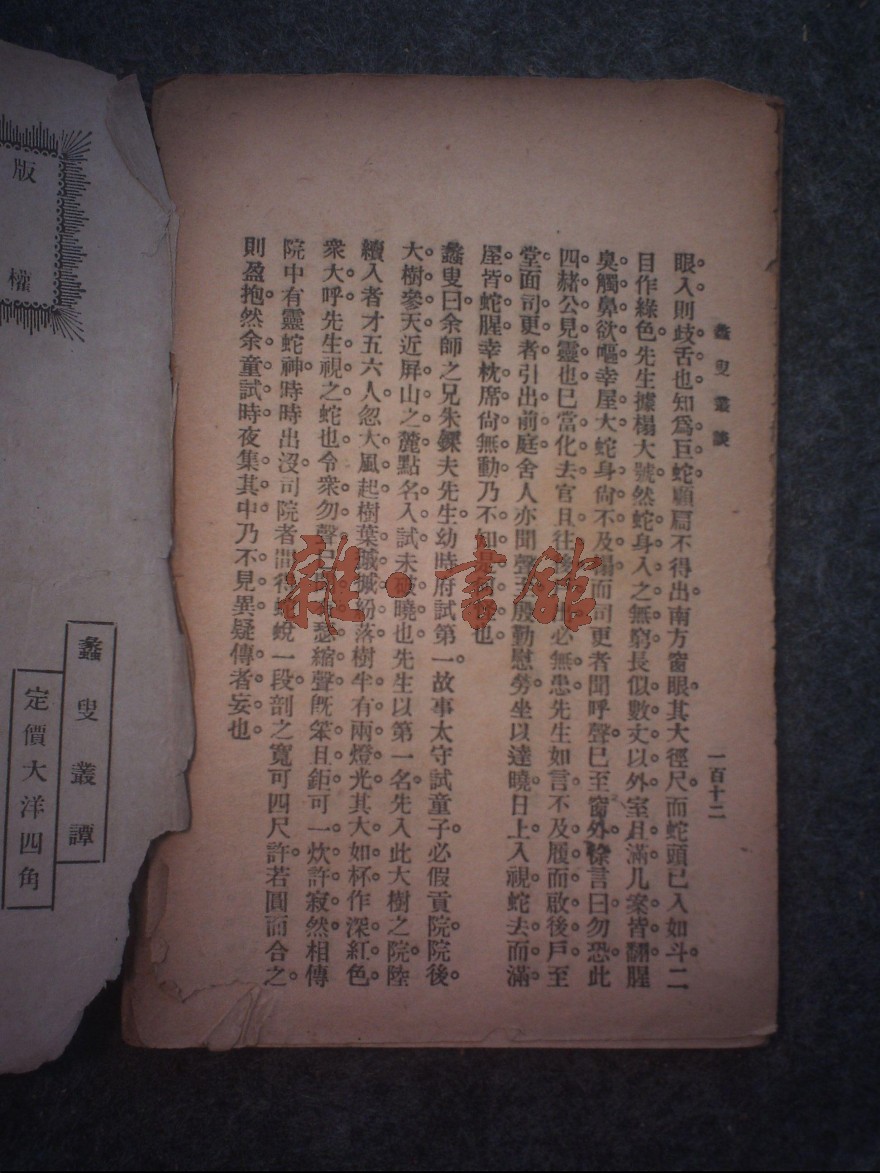 蠡叟叢談
一百十二
眼入則歧舌也知爲巨蛇顧扃不得出南方窗眼其大徑尺而蛇頭已入如斗二
目作綠色先生據榻大號然蛇身入之無窮長似數丈以外室且滿几案皆翻腥
臭觸鼻欲嘔幸屋大蛇身尙不及榻而司更者聞呼聲已至窗外徐言曰勿恐此
四赭公見靈也已當化去官且往後必無患先生如言不及履而啟後戶至
堂面司更者引出前庭舍人亦聞聲至殷勤慰勞坐以達曉日上入視蛇去而滿
屋皆蛇腥幸枕席尙無動乃不知是也
蠡叟曰余師之兄朱鏁夫先生幼時府試第一故事太守試童子必假貢院院後
大樹參天近屏山之麓點名入試未破曉也先生以第一名先入此大樹之院陸
續入者才五六人忽大風起樹葉摵摵紛落樹半有兩燈光其大如杯作深紅色
衆大呼先生視之蛇也令衆勿聲瑟縮聲旣笨且鉅可一炊許寂然相傳
院中有靈蛇神時時出沒司院者間得蛇蛻一段剖之寬可四尺許若圓而合之
則盈抱然余童試時夜集其中乃不見異疑傳者妄也
雜·書館
版
權
蠡叟叢譚
定價大洋四角